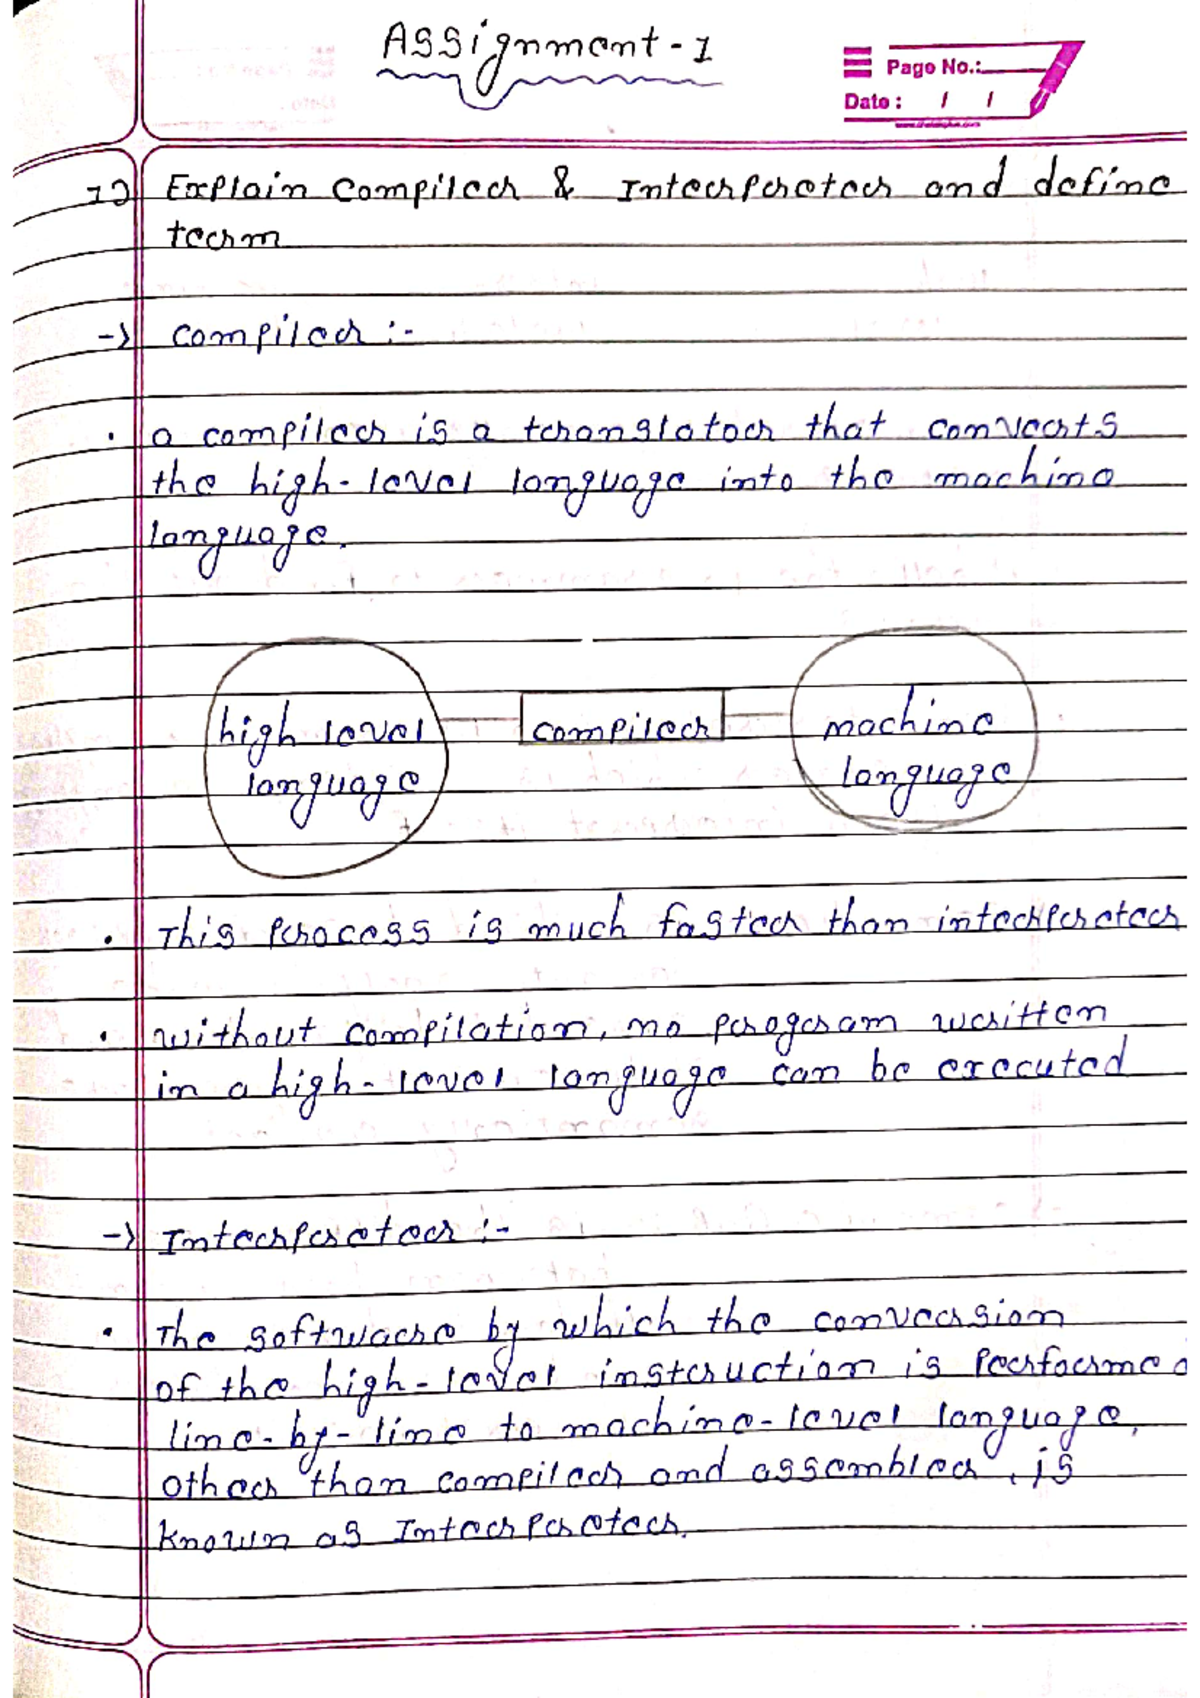 Assignment - 1
Page No.:
Date : / /
1) Explain compiler & Interpreter and define
term
-> compiler :-
• a compiler is a translator that converts
the high-level language into the machine
language.
high level
language
compiler
machine
language
• This process is much faster than interpreter
• without compilation, no program written
in a high-level language can be executed
-> Interpreter :-
• The software by which the conversion
of the high-level instruction is performed
line-by-line to machine-level language,
other than compiler and assembler, is
known as Interpreter.